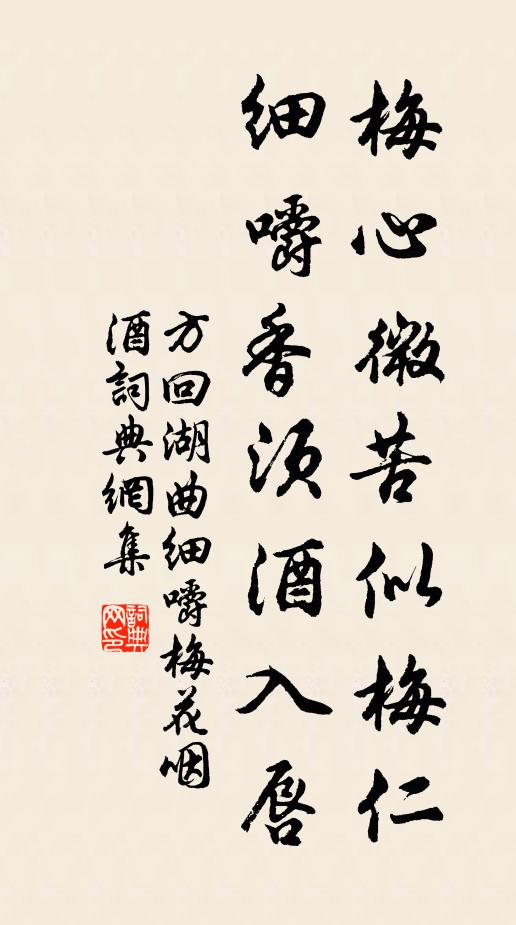 梅心微苦似梅仁
细嚼香须酒入唇
方回湖曲细嚼梅花咽
酒詞典網集
詞典网印